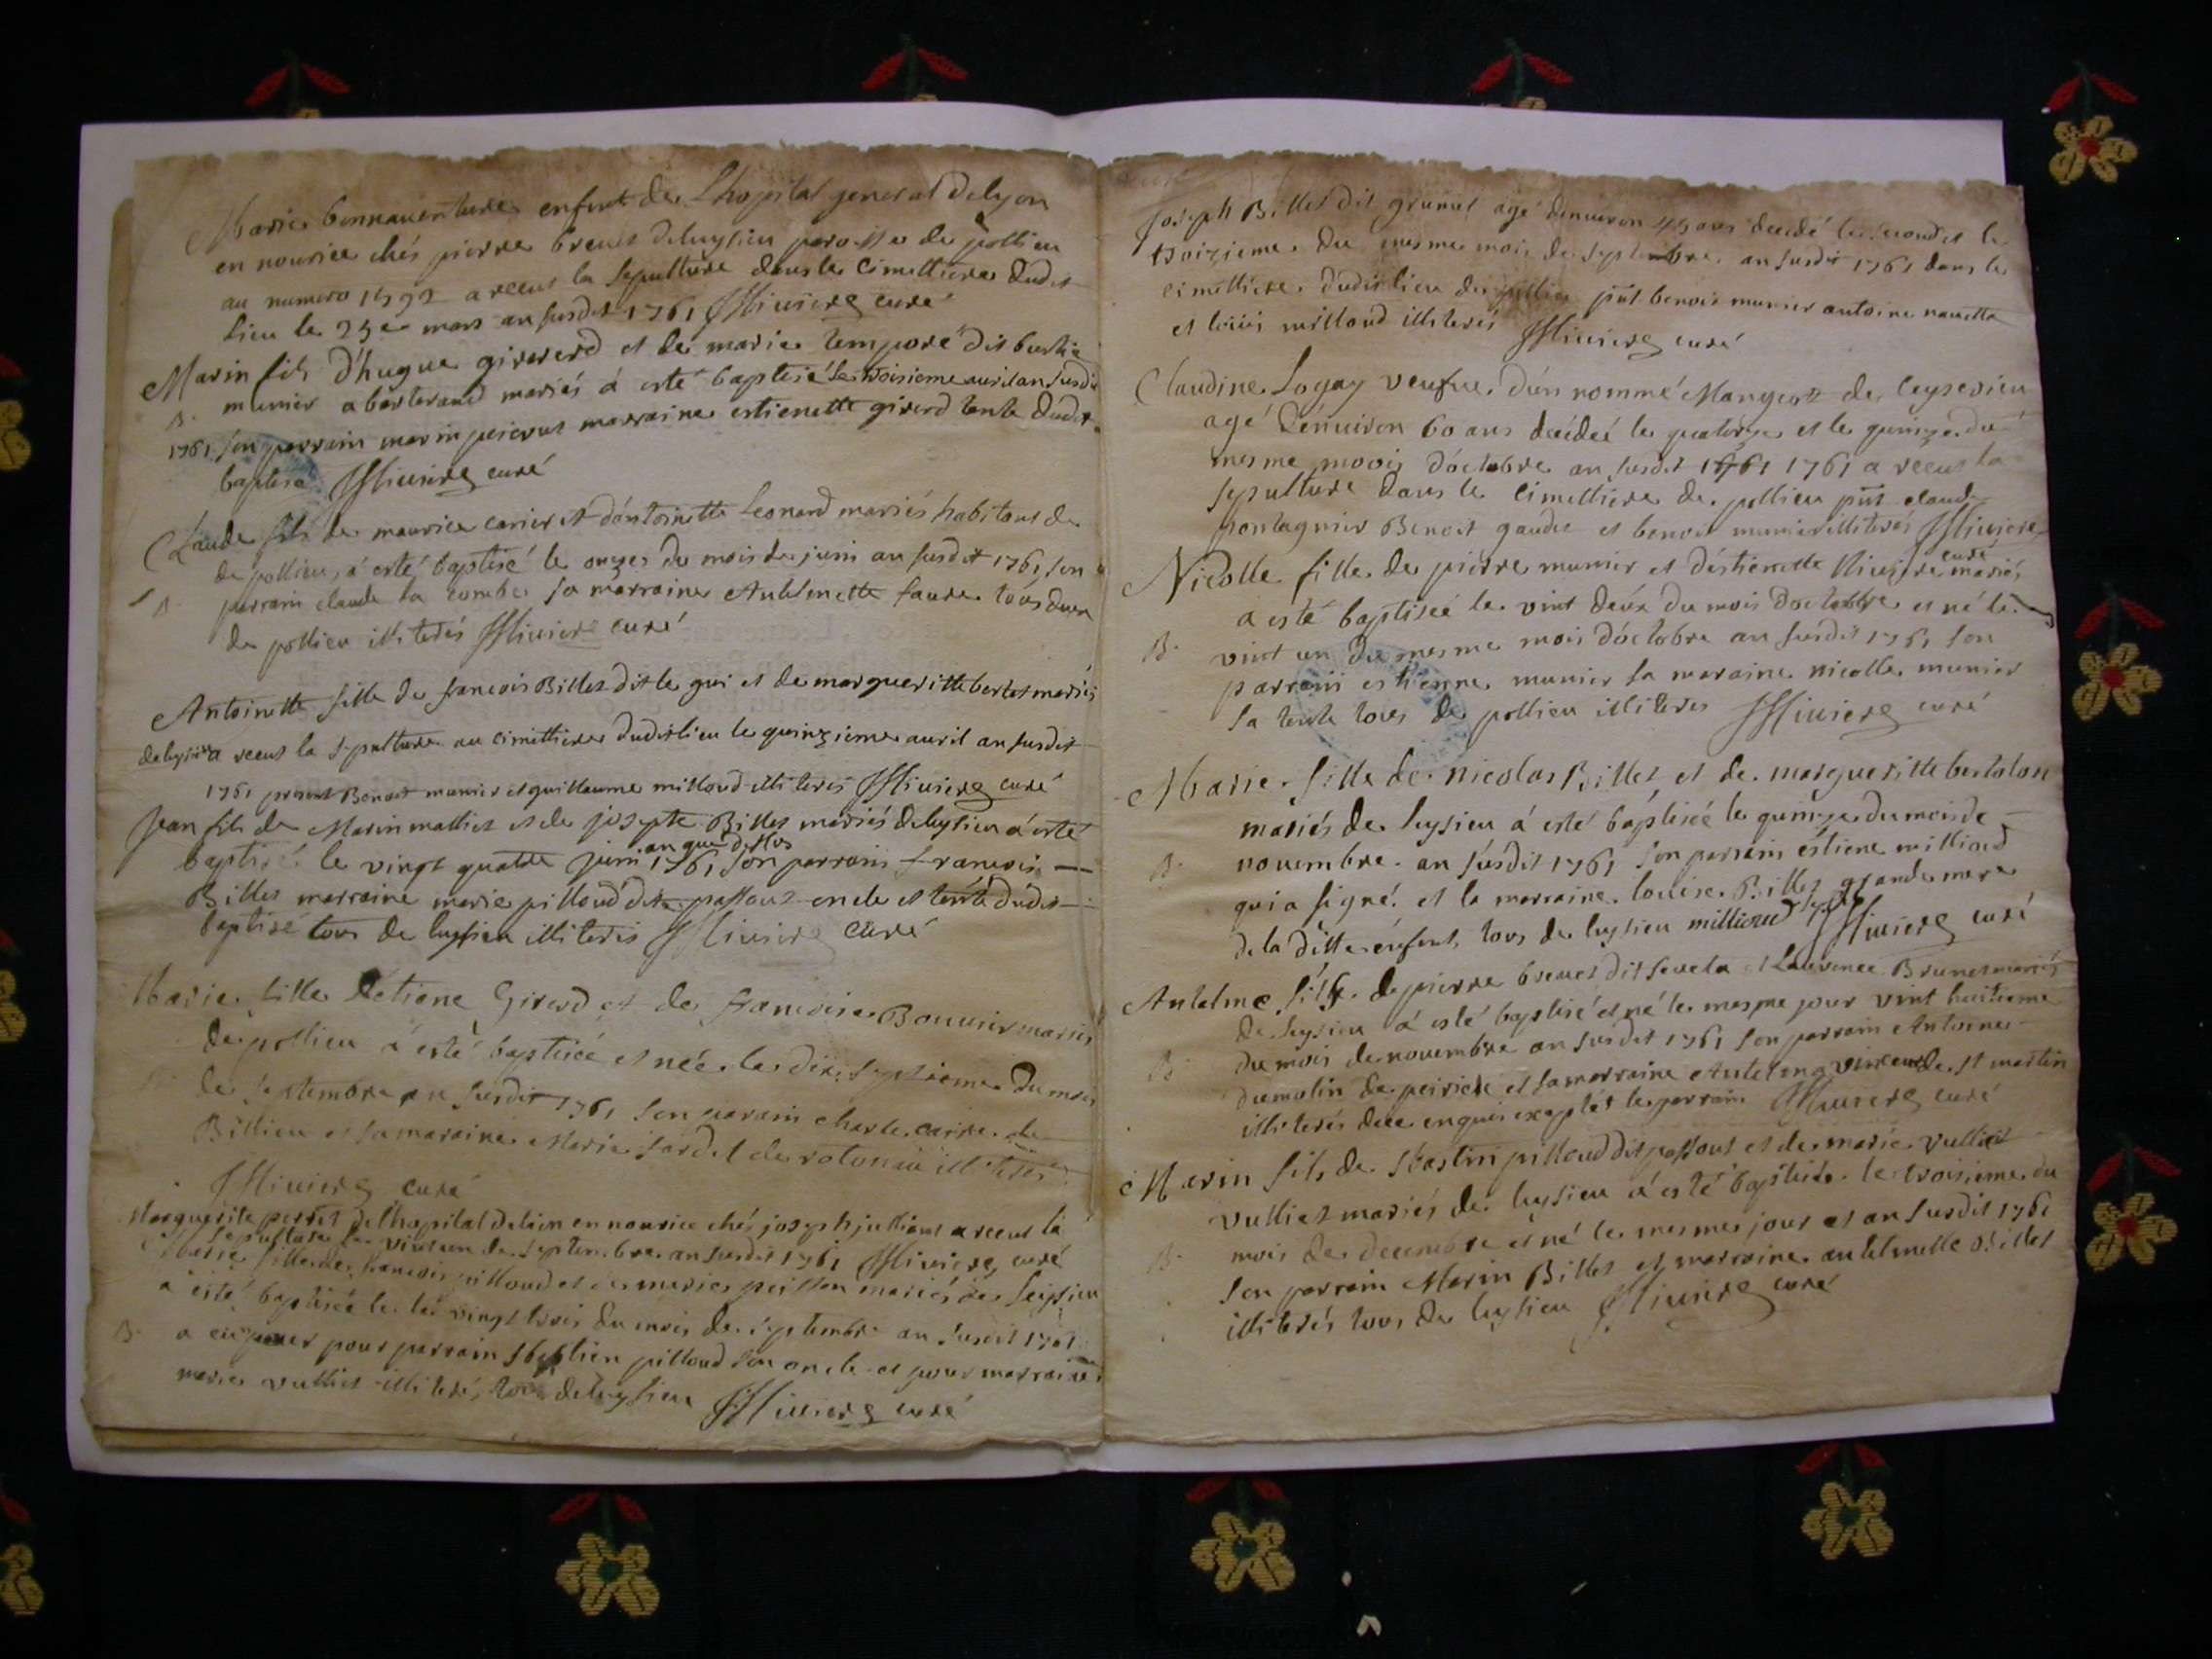 Marie bonnauenture enfent de Lhopital general de lyon
en nourice chés pierre breuet de luysieu paroisse de pollieu
au numero 1592 a receut la sepulture dans le cimettiere dudit
lieu le 25e mars an susdit 1761 curé
Marin fils d'hugue girererd et de marie tempore dit
munier abarterand mariés á esté baptisé le troisieme auril an susdit
B.
1761 son parrain marin marraine estienette girerd tente dudit
baptisé curé
Claude fils de maurice carier et d'antoinette Leonard mariés habitant de
de pollieu, á esté baptisé le onzes du mois de juin an susdit 1761 son
B. parrain claude la combe sa marraine Anthelmette faure tous deux
de pollieu illiterés curé
Antoinette fille de francois Billet dit le gui et de margueritte bertet mariés
de luysieu a receut la sepulture au cimettiere dudit lieu le quinzieme auril an susdit
1761 present Benoit munier et guillaume milloud illiterés curé
Jean fils de Marin malliet et de josepte Billet mariés de luysieu á esté
an que dessus
baptisé le vingt quatre juin 1761 son parrain francois
Billet marraine marie pilloud dit passout oncle et tente dudit
baptisé tous de luysieu illiterés curé
Marie fille detiene Girerd et de francoise Bouuier mariés
de pollieu á esté baptisée et née le dix septieme du mois
de septembre an susdit 1761 son parain charle de
Billieu et sa maraine Marie jardet de illiterés
curé
Marguerite perret de lhopital de lion en nourice chés joseph jullient a receut la
sepulture le vint un de septembre an susdit 1761 curé
Marie fille de francois pilloud et de marie peisson mariés de luysieu
á esté baptisée le le vingt trois du mois de septembre an susdit 1761
B. a eu pour parrain sbastien pilloud son oncle et pour marraine
marie vulliet illiterés tous de luysieu curé
Joseph Billet dit grumel agé denuiron 45 ans decidé le second et le
troizieme du mesme mois de septembre an susdit 1761 dans le
cimettiere dudit lieu de pollieu pnt benoit munier antoine nauette
et loüis milloud illiterés curé
Claudine Logay veufue d'un nommé Mangeot de leyserieu
agé d'enuiron 60 ans décidée le quatorze et le quinze du
mesme moois d'octobre an susdit 1761 1761 a receut la
sepulture dans le cimettiere de pollieu pnt claude
pontagnier Benoit gaudet et benoit munier illiterés
curé
Nicolle fille de pierre munier et d'estienette mariés
a esté baptiseé le vint deux du mois d'octobre et né le
B. vint un du mesme mois d'octobre an susdit 1761 son
parrain estienne munier sa maraine nicolle munier
sa tente tous de pollieu illiteres curé
Marie fille de nicolas Billet et de margueritte bertolon
mariés de luysieu á esté baptisée le quinze du mois de
B. nouembre an susdit 1761 son parrain éstiene milliand
qui a signé et la marraine louise Billet grande mere
de la ditte énfent, tous de luysieu milliand curé
Antelme fils de pierre breuet dit et Laurence Brunet mariés
de luysieu á esté baptisé et né le mesme jour vint huitieme
B. du mois de nouembre an susdit 1761 son parrain Antoine
dumolin de peirieu et sa marraine Antelma vincent de st martin
illiterés de ce enquis excepté le parrain curé
Marin fils de sbastin pilloud dit passout et de marie vulliet
vulliet mariés de luysieu á esté baptisé le troisieme du
B. mois de decembre et né le mesme jour et an susdit 1761
son parrain Marin Billet et marraine antelmette Billet
illiterés tous de luysieu curé